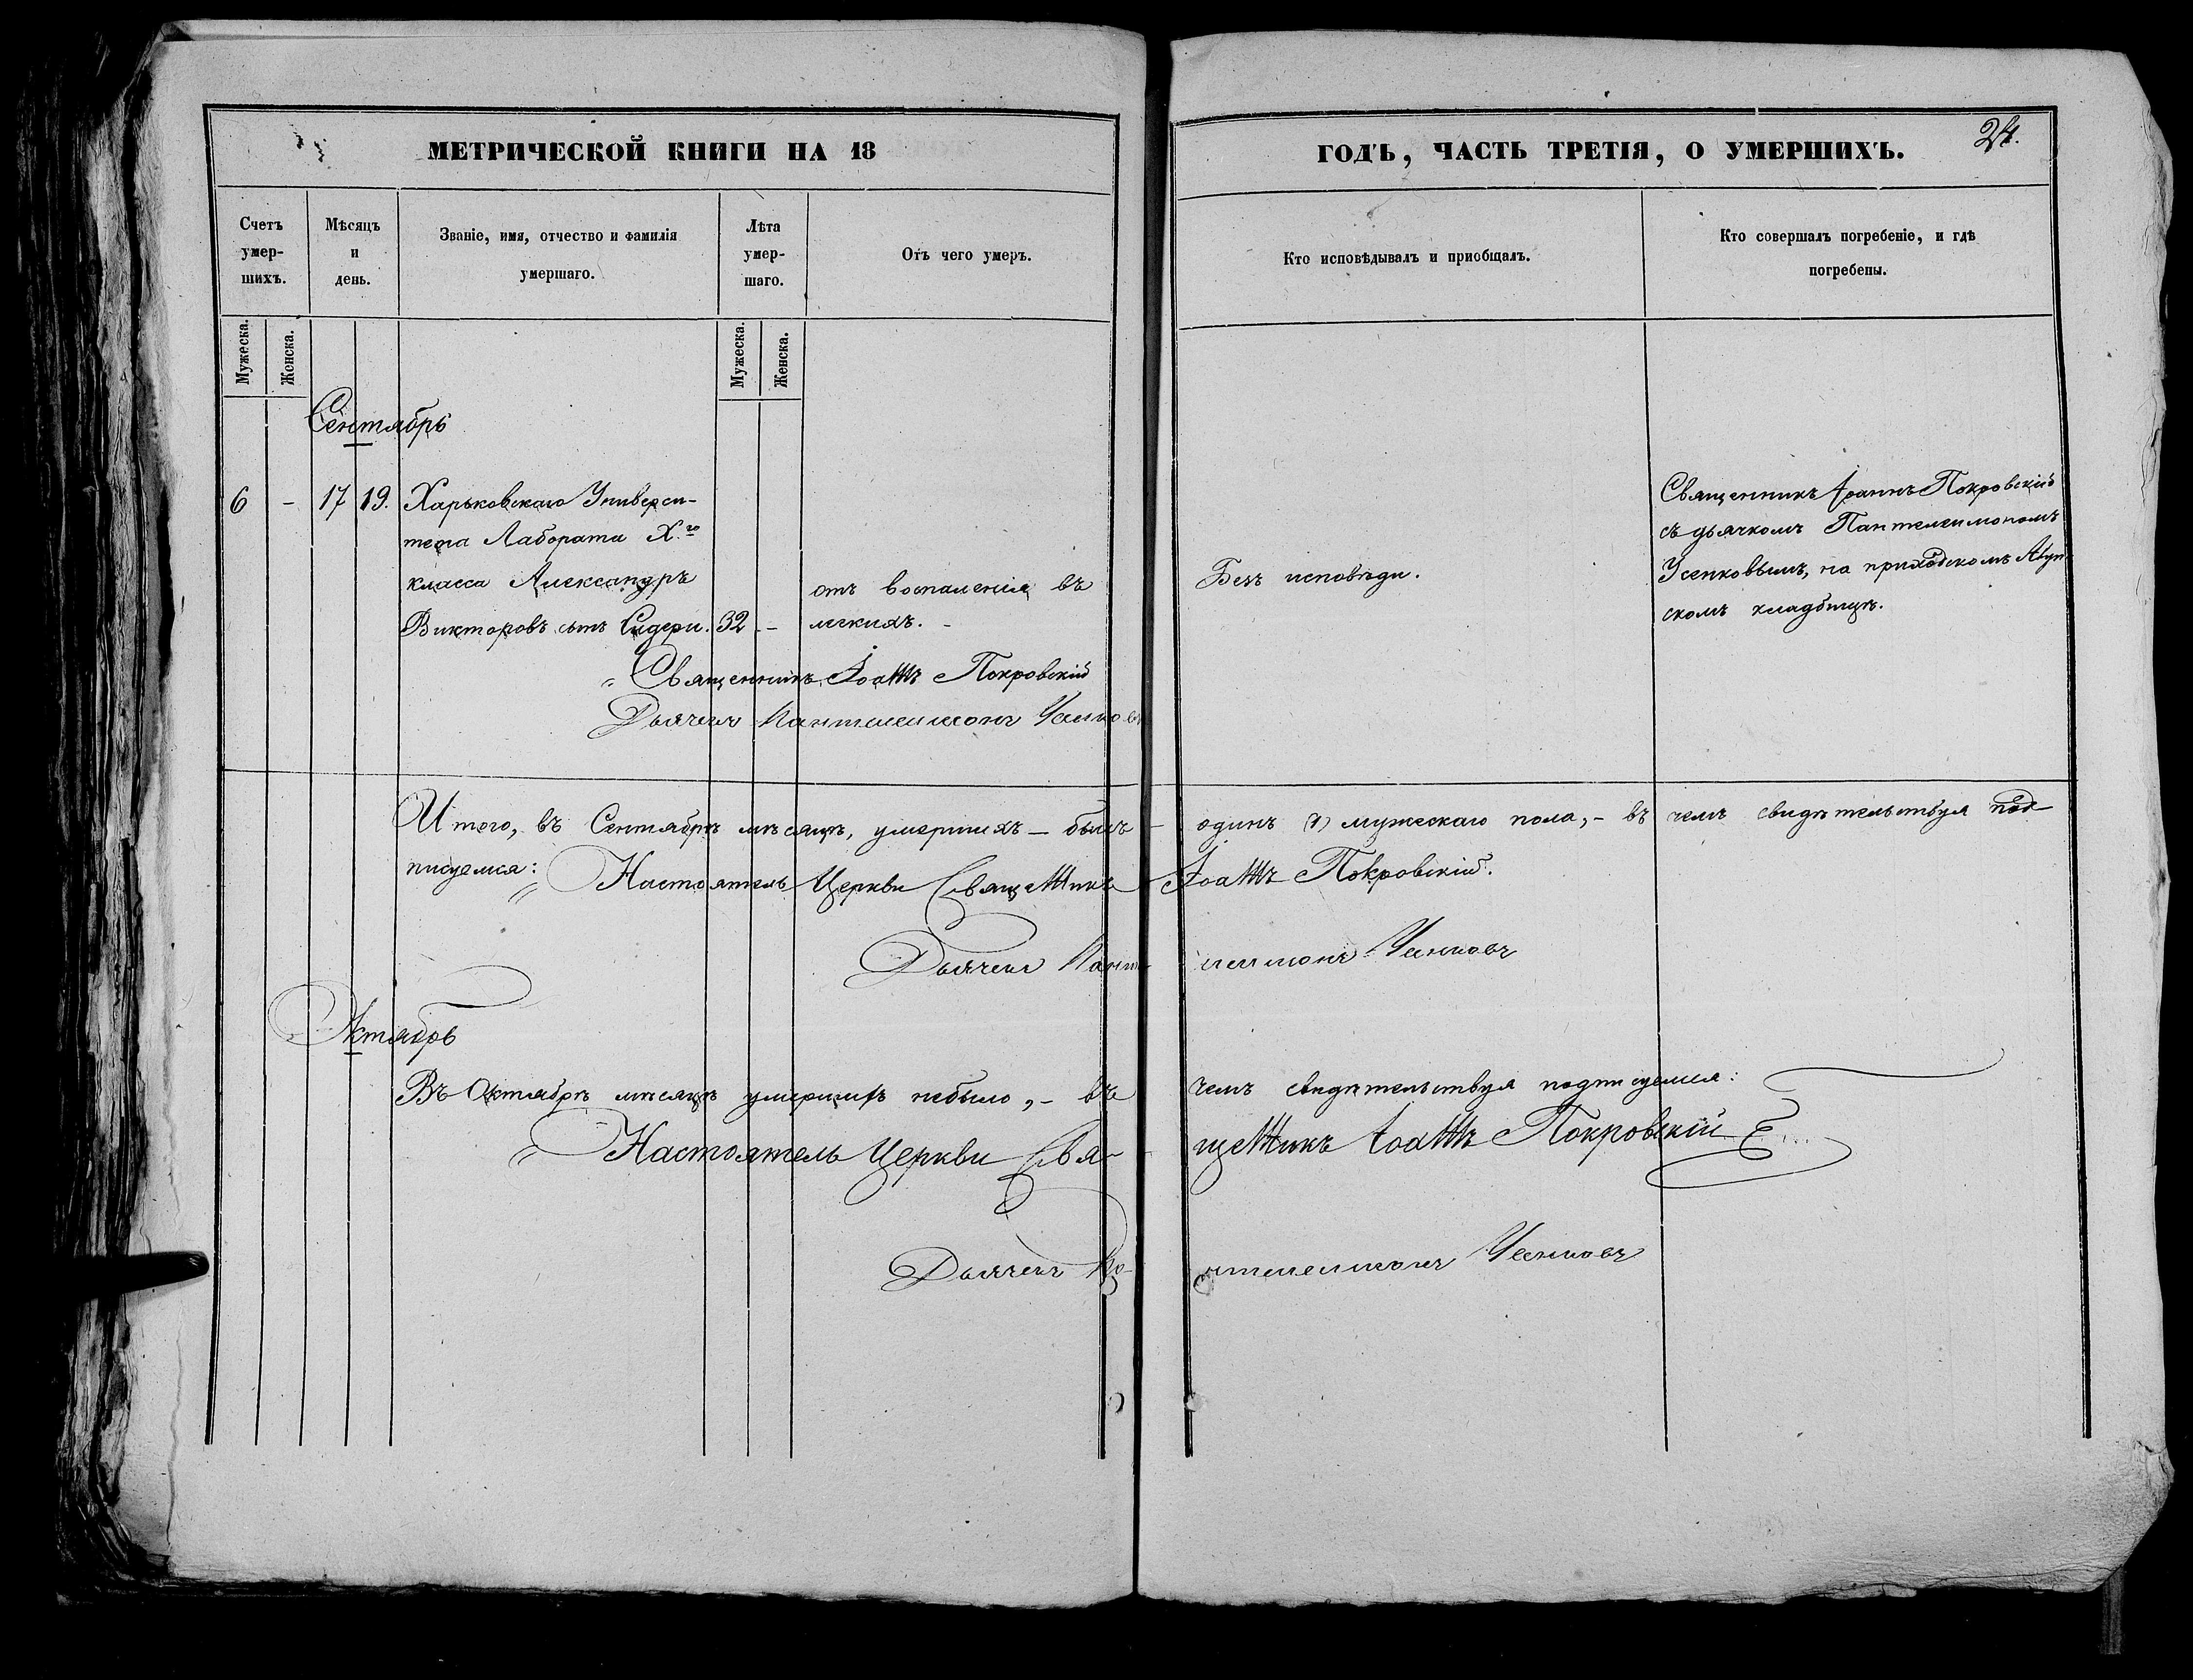 МЕТРИЧЕСКОЙ КНИГИ НА 18
ГОДЪ, ЧАСТЬ ТРЕТІЯ, О УМЕРШИХЪ.
24.
Счетъ умер-шихъ.
Мѣсяцъ и день.
Званіе, имя, отчество и фамилія умершаго.
Лѣта умер-шаго.
Отъ чего умеръ.
Кто исповѣдывалъ и приобщалъ.
Кто совершалъ погребеніе, и гдѣ погребены.
Мужеска.
Женска.
Мужеска.
Женска.
Сентябрь
6 - 17 19. Харьковскаго Универси-
тета Лаборанта Х.го
класса Александръ
Викторовъ сынъ Сидери. 32 -
отъ воспаленія въ
легкихъ. -
Безъ исповѣди.
Священникъ Іоаннъ Покровскій
съ дьячкомъ Пантелеимономъ
Усенковымъ, на приходскомъ
скомъ кладбищѣ.
Священникъ Іоаннъ Покровскій
Дьячекъ Пантелеимонъ Усенковъ
Итого, въ Сентябрѣ мѣсяцѣ, умершихъ - былъ - одинъ (1) мужескаго пола, - въ чемъ свидѣтельствуя под-
писуемся: Настоятель Церкви Священникъ Іоаннъ Покровскій.
Дьячекъ Пантелеимонъ Усенковъ
Октябрь
Въ Октябрѣ мѣсяцѣ умершихъ небыло, - въ чемъ свидѣтельствуя подписуемся:
Настоятель Церкви Свя-щенникъ Іоаннъ Покровскій
Дьячекъ Пантелеимонъ Усенковъ